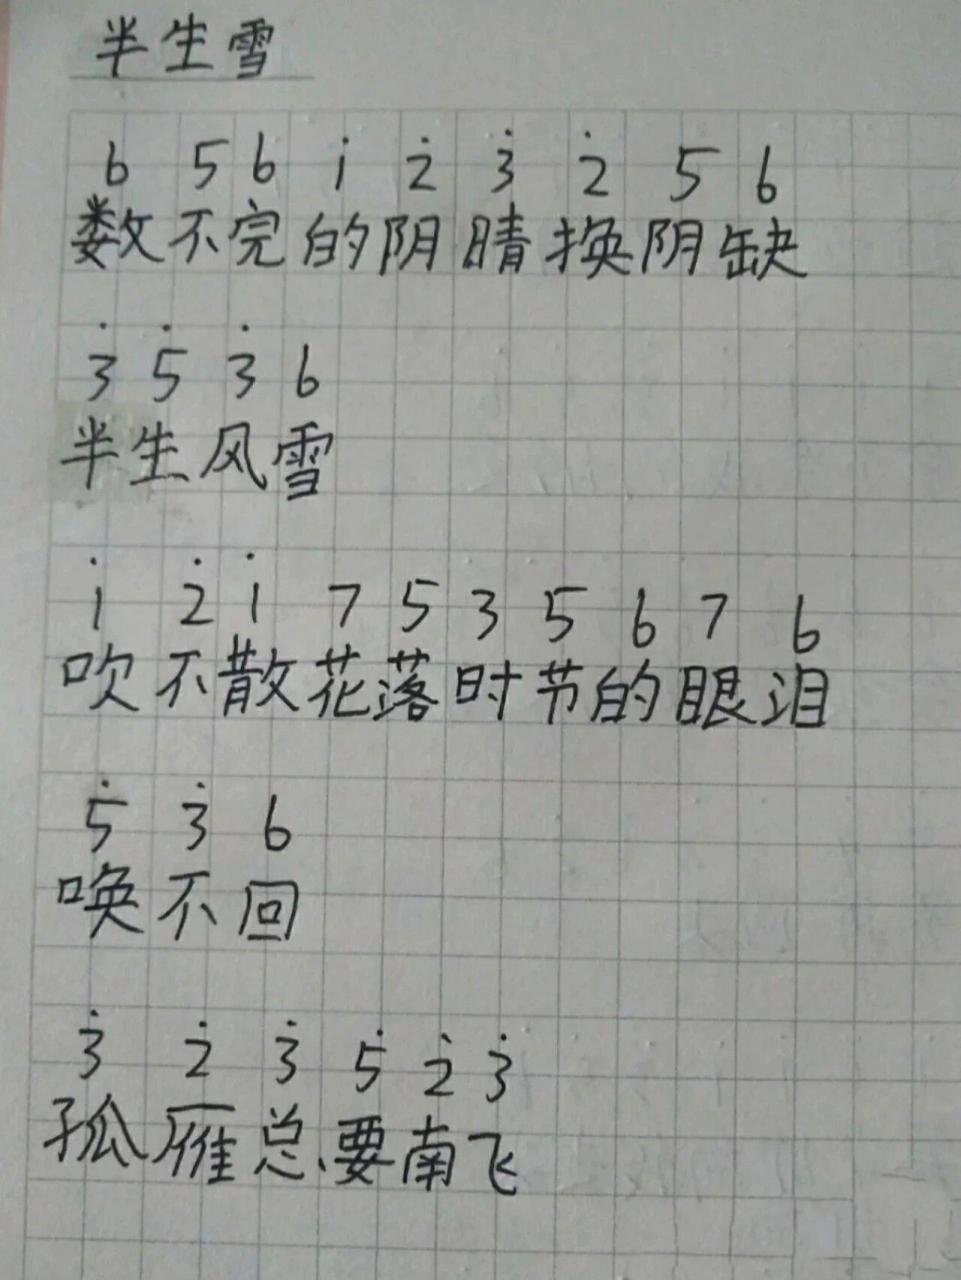 半生雪
6 5 6 i 2̇ 3̇ 2̇ 5 6
数不完的阴晴换阴缺
3̇ 5̇ 3̇ 6
半生风雪
1̇ 2̇ 1̇ 7 5 3 5 6 7 6
吹不散花落时节的眼泪
5̇ 3̇ 6
唤不回
3̇ 2̇ 3̇ 5̇ 2̇ 3̇
孤雁总要南飞